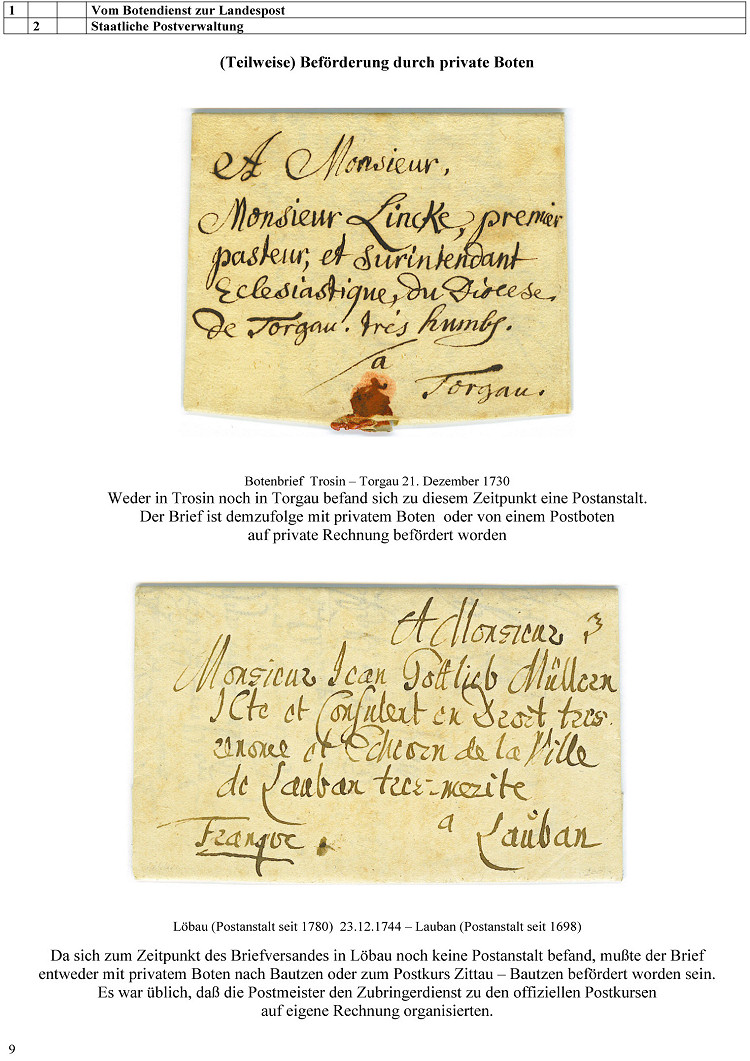 1 Vom Botendienst zur Landespost
2 Staatliche Postverwaltung
(Teilweise) Beförderung durch private Boten
A Monsieur,
Monsieur Lincke, premier
pasteur, et Surintendant
Eclesiastique, du Diocese
de Torgau. trés humbs.
a
Torgau.
Botenbrief Trosin – Torgau 21. Dezember 1730
Weder in Trosin noch in Torgau befand sich zu diesem Zeitpunkt eine Postanstalt.
Der Brief ist demzufolge mit privatem Boten oder von einem Postboten
auf private Rechnung befördert worden
A Monsieur
Monsieur Jean Gottlieb Müllern
JCte et Consulent en Droit tres
renome et Echevin de la Ville
de Lauban tres-merite
a
Franque. Lauban
Löbau (Postanstalt seit 1780) 23.12.1744 – Lauban (Postanstalt seit 1698)
Da sich zum Zeitpunkt des Briefversandes in Löbau noch keine Postanstalt befand, mußte der Brief
entweder mit privatem Boten nach Bautzen oder zum Postkurs Zittau – Bautzen befördert worden sein.
Es war üblich, daß die Postmeister den Zubringerdienst zu den offiziellen Postkursen
auf eigene Rechnung organisierten.
9